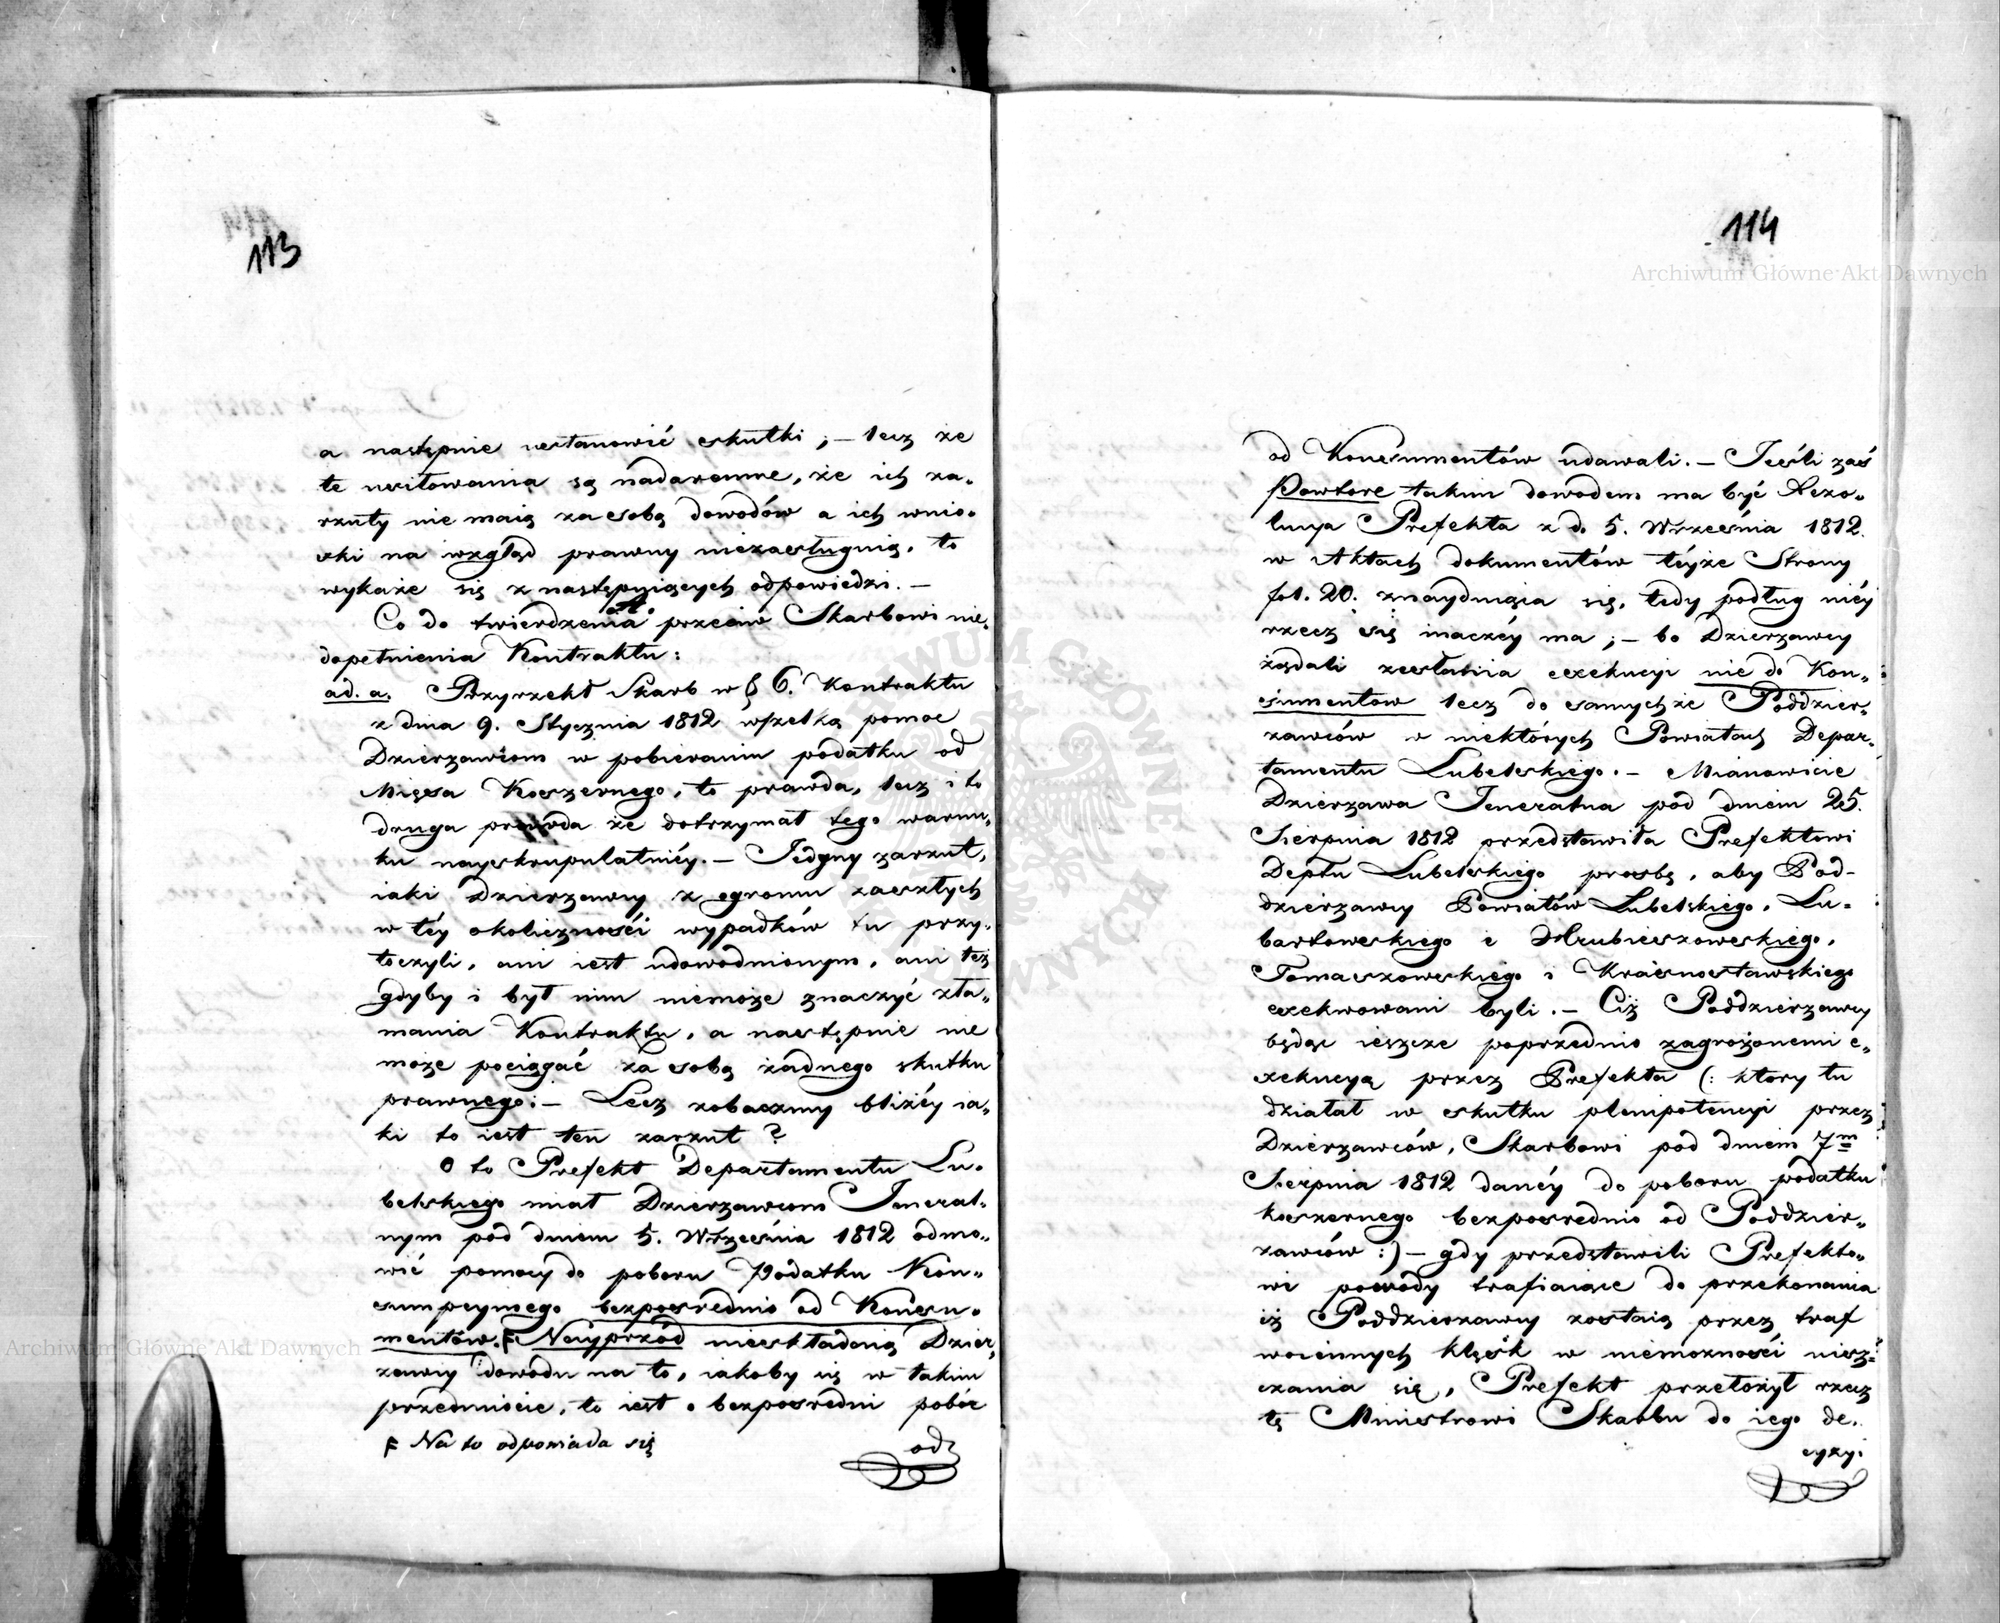 113
a następnie ustanowić skutki; – lecz że
te usiłowania są nadaremne, że ich za-
rzuty nie maią za sobą dowodów a ich wnio-
ski na wzgląd prawny niezasługuią, to
wykaże się z następuiących odpowiedzi. –
A.
Co do twierdzenia przeciw Skarbowi nie-
dopełnienia Kontraktu:
ad. a. Przyrzekł Skarb w § 6. Kontraktu
z dnia 9. Stycznia 1812 wszelką pomoc
Dzierzawcom w pobieraniu podatku od
Mięsa Koszernego, to prawda, lecz i to
druga prawda że dotrzymał tego warun-
ku nayskrupulatniéy. – Jedyny zarzut,
iaki Dzierzawcy z ogromu zaszłych
w téy okoliczności wypadków tu przy-
toczyli, ani iest udowodnionym, ani też
gdyby i był nim niemoże znaczyć zła-
mania Kontraktu, a następnie nie
może pociągać za sobą żadnego skutku
prawnego: – Lecz zobaczmy bliżéy ia-
ki to iest ten zarzut?
Oto Prefekt Departamentu Lu-
belskiego miał Dzierzawcom Jeneral-
nym pod dniem 5. Września 1812 odmo-
wić pomocy do poboru Podatku Kon-
sumpcyinego bezpośrednio od Konsu-
mentów. F Nayprzód nieskładaią Dzier-
zawcy dowodu na to, iakoby się w takim
przedmiocie, to iest o bezpośredni pobór
F Na to odpowiada się
od
114
od Konsumentów udawali. – Jeśli zaś
Powtore takim dowodem ma być Rezo-
lucya Prefekta z d. 5. Września 1812.
w Aktach dokumentów téyże Strony
fol. 20. znayduiąca się, tedy podług niéy
rzecz się inaczéy ma; – bo Dzierzawcy
żądali zesłania exekucyi nie do Kon-
sumentow lecz do samychże Poddzier-
zawców w niektórych Powiatach Depar-
tamentu Lubelskiego. – Mianowicie
Dzierzawa Jeneralna pod dniem 25.
Sierpnia 1812 przedstawiła Prefektowi
Deptu Lubelskiego prośbę, aby Pod-
dzierzawcy Powiatów Lubelskiego, Lu-
bartowskiego i Hrubieszowskiego,
Tomaszowskiego i Krasnostawskiego
exekwowani byli. – Ciż Poddzierzawcy
będąc ieszcze poprzednio zagrożonemi e-
xekucyą przez Prefekta (: ktory tu
działał w skutku plenipotencyi przez
Dzierzawców, Skarbowi pod dniem 7m
Sierpnia 1812 danéy do poboru podatku
koszernego bezpośrednio od Poddzier-
zawców :) – gdy przedstawili Prefekto-
wi powody trafiaiące do przekonania
iż Poddzierzawcy zostaią przez traf
woiennych klęsk w niemożności uisz-
czania się, Prefekt przełożył rzecz
tę Ministrowi Skarbu do iego de-
cyzyi
Archiwum Główne Akt Dawnych
Archiwum Główne Akt Dawnych
ARCHIWUM GŁÓWNE AKT DAWNYCH